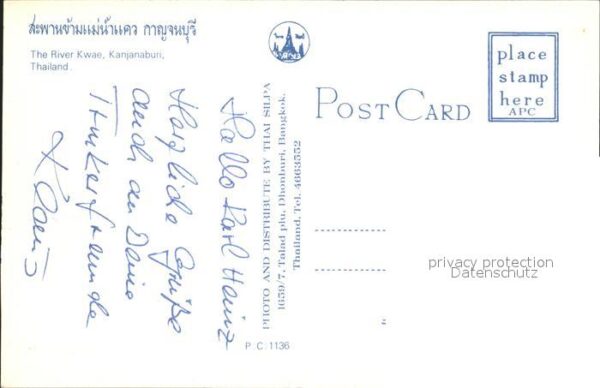 สะพานข้ามแม่น้ำแคว กาญจนบุรี
The River Kwae, Kanjanaburi,
Thailand.
Hallo Karl Heinz
Herzliche Grüße
auch an Deine
PHOTO AND DISTRIBUTE BY THAI SILPA
1659/7, Talad plu, Dhonburi, Bangkok.
Thailand. Tel. 4663552
POST CARD
place
stamp
here
APC
privacy protection
Datenschutz
P. C. 1136